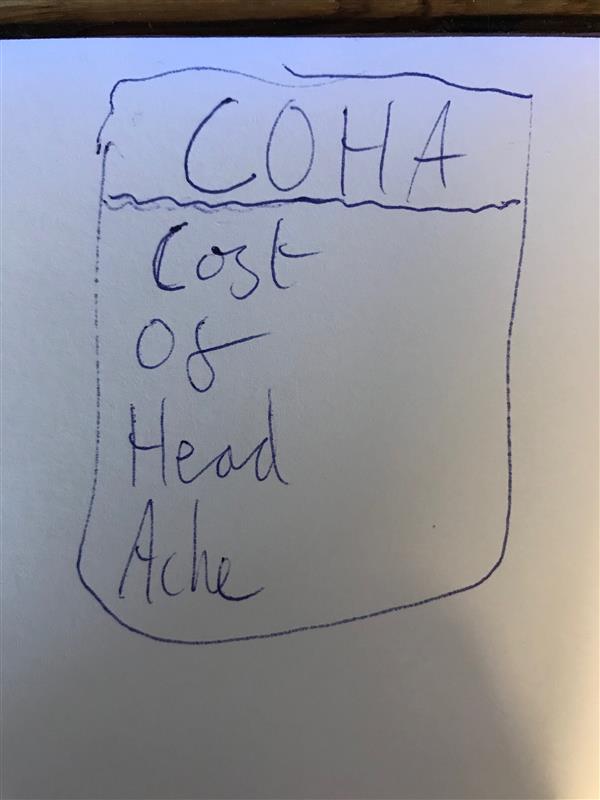 COHA
Cost
Of
Head
Ache